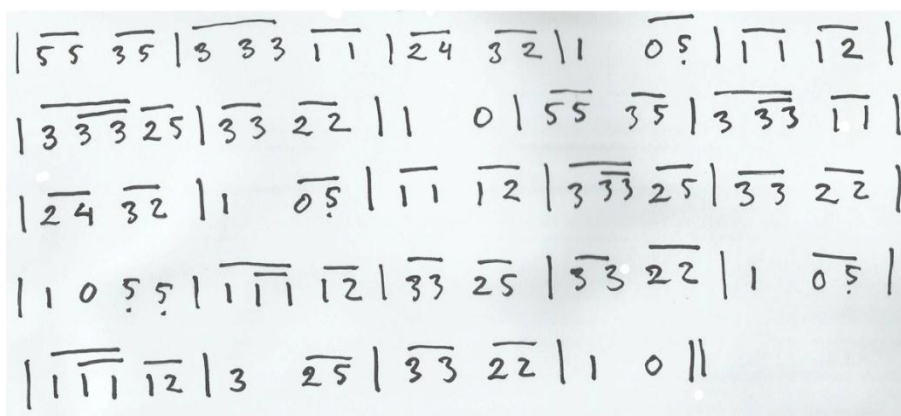 | 5̅5̅ 3̅5̅ | 3̅ 3̅3̅ 1̅1̅ | 2̅4̅ 3̅2̅ | 1 0̅5̣̅ | 1̅1̅ 1̅2̅ |
| 3̅ 3̿3̿ 2̅5̅ | 3̅3̅ 2̅2̅ | 1 0 | 5̅5̅ 3̅5̅ | 3̅ 3̿3̿ 1̅1̅ |
| 2̅4̅ 3̅2̅ | 1 0̅5̣̅ | 1̅1̅ 1̅2̅ | 3̅ 3̿3̿ 2̅5̅ | 3̅3̅ 2̅2̅ |
| 1 0 5̣ 5̣ | 1̅ 1̿1̿ 1̅2̅ | 3̅3̅ 2̅5̅ | 3̅3̅ 2̅2̅ | 1 0̅5̣̅ |
| 1̅ 1̿1̿ 1̅2̅ | 3 2̅5̅ | 3̅3̅ 2̅2̅ | 1 0 ||